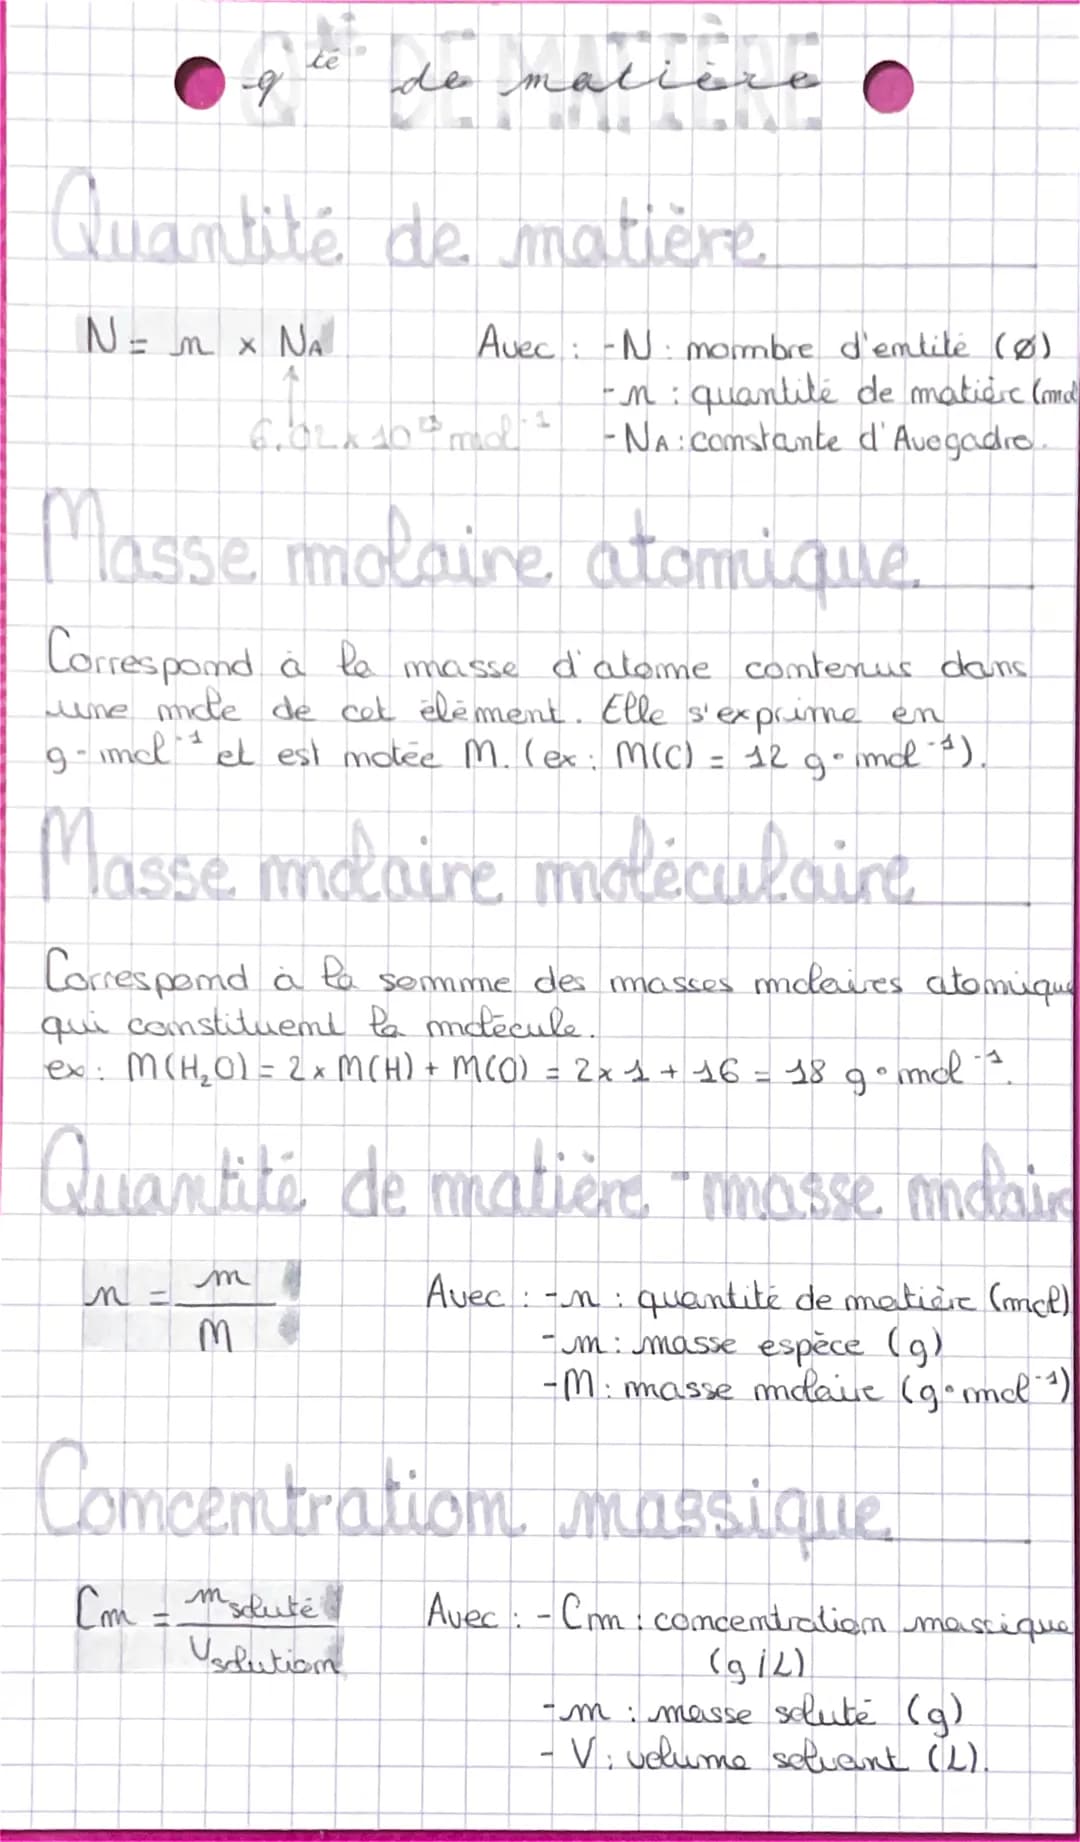 Qté DE MATIÈRE
qté de matière
Quantité de matière
N = n × NA Avec : - N : nombre d'entité (Ø)
- n : quantité de matière (mol
6,02 × 10²³ mol⁻¹ - NA : constante d'Avogadro.
Masse molaire atomique
Correspond à la masse d'atome contenus dans
une mole de cet élément. Elle s'exprime en
g·mol⁻¹ et est notée M. (ex : M(C) = 12 g·mol⁻¹).
Masse molaire moléculaire
Correspond à la somme des masses molaires atomique
qui constituent la molécule.
ex : M(H₂O) = 2 × M(H) + M(O) = 2 × 1 + 16 = 18 g·mol⁻¹.
Quantité de matière - masse molaire
n = m / M Avec : - n : quantité de matière (mol)
- m : masse espèce (g)
- M : masse molaire (g·mol⁻¹)
Concentration massique
Cm = m soluté / V solution Avec : - Cm : concentration massique
(g/L)
- m : masse soluté (g)
- V : volume solvant (L).